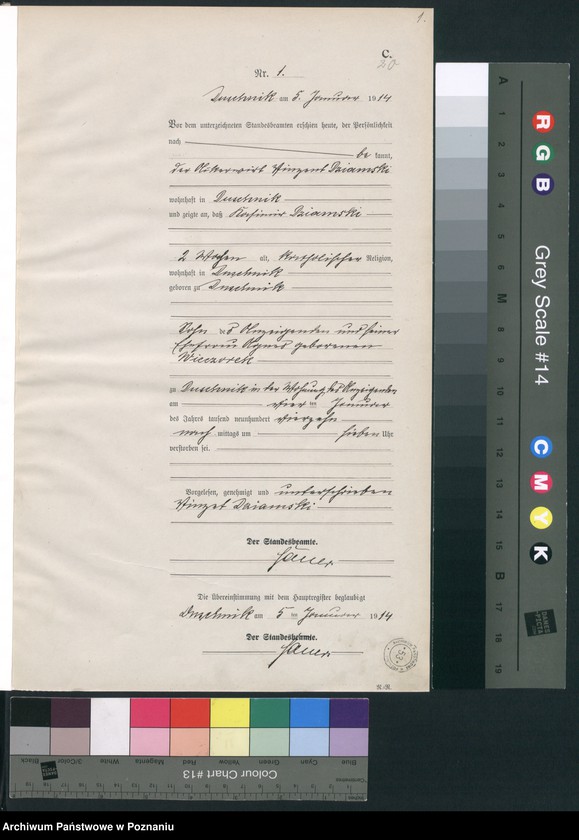 1.
C.
20
Nr. 1.
Duschnik am 5. Januar 1914
Vor dem unterzeichneten Standesbeamten erschien heute, der Persönlichkeit
nach
be kannt,
der Ackerwirt Vinzent Dziamski
wohnhaft in Duschnik
und zeigte an, daß Kasimir Dziamski
2 Wochen alt, katholischer Religion,
wohnhaft in Duschnik
geboren zu Duschnik
Sohn des Anzeigenden und seiner
Ehefrau Agnes geborenen
Wieczorek
zu Duschnik in der Wohnung des Anzeigenden
am vier ten Januar
des Jahres tausend neunhundert vierzehn
nach mittags um sieben Uhr
verstorben sei.
Vorgelesen, genehmigt und unterschrieben
Vinzet Dziamski
Der Standesbeamte.
Die Übereinstimmung mit dem Hauptregister beglaubigt
Duschnik am 5 ten Januar 1914
Der Standesbeamte.
53
A 1 2 3 4 5 M 8 9 10 11 12 13 14 15 B 17 18 19
R G B
Grey Scale #14
C M Y K
DANES PICTA
Colour Chart #13
Blue Cyan Green Yellow Red Magenta White 3/Color Black
Archiwum Państwowe w Poznaniu